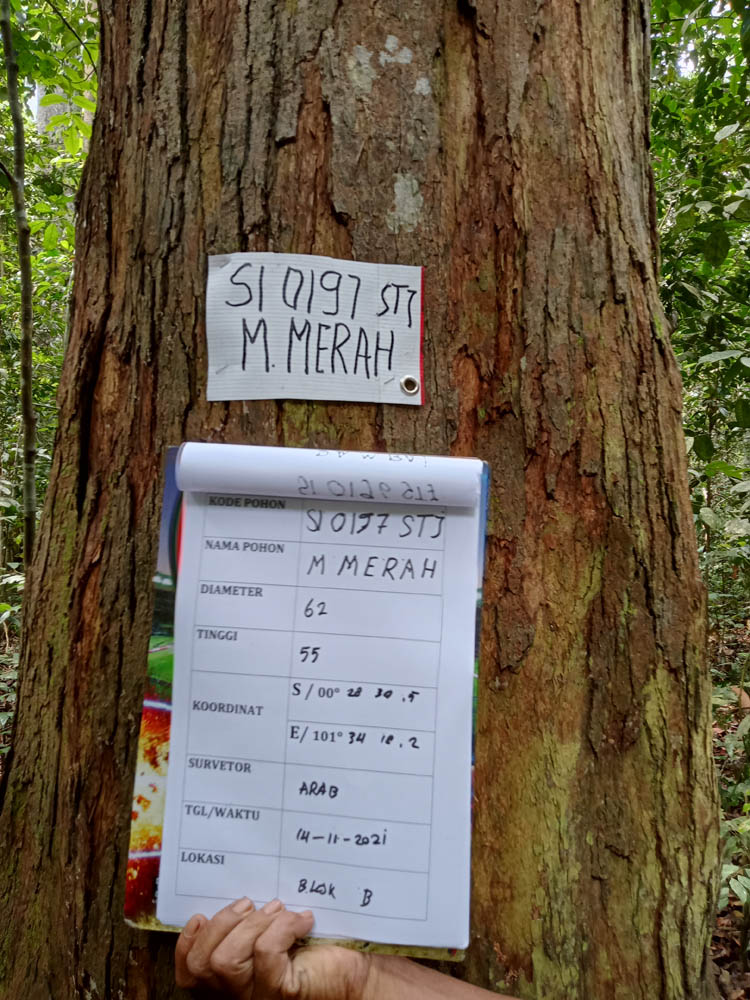 SI 0197 STJ
M. MERAH
KODE POHON SI 0197 STJ
NAMA POHON M MERAH
DIAMETER 62
TINGGI 55
KOORDINAT S / 00° 28 30 .5
E/ 101° 34 18 . 2
SURVETOR ARAB
TGL/WAKTU 14-11-2021
LOKASI BLOK B